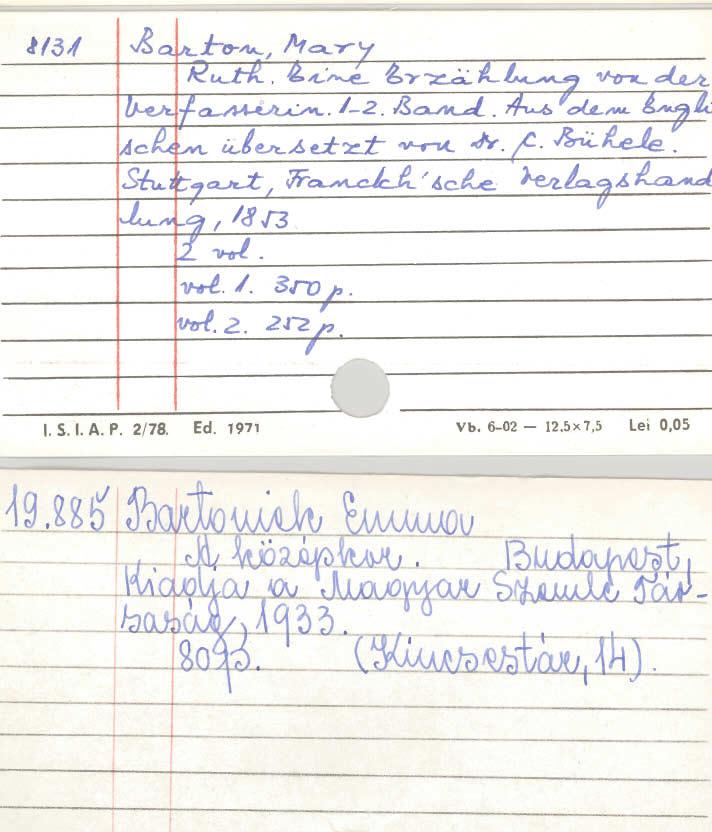 8131 Barton, Mary
Ruth. Eine Erzählung von der
Verfasserin. 1-2. Band. Aus dem Engli
schen übersetzt von Dr. C. Bühele.
Stuttgart, Franckh'sche Verlagshand
lung, 1853
2 vol.
vol. 1. 350 p.
vol. 2. 252 p.
I. S. I. A. P. 2/78. Ed. 1971 Vb. 6-02 — 12,5×7,5 Lei 0,05
19.885 Bartoniek Emma
A középkor. Budapest,
Kiadja a Magyar Szemle Tár-
saság, 1933.
80 p. (Kincsestár, 14).